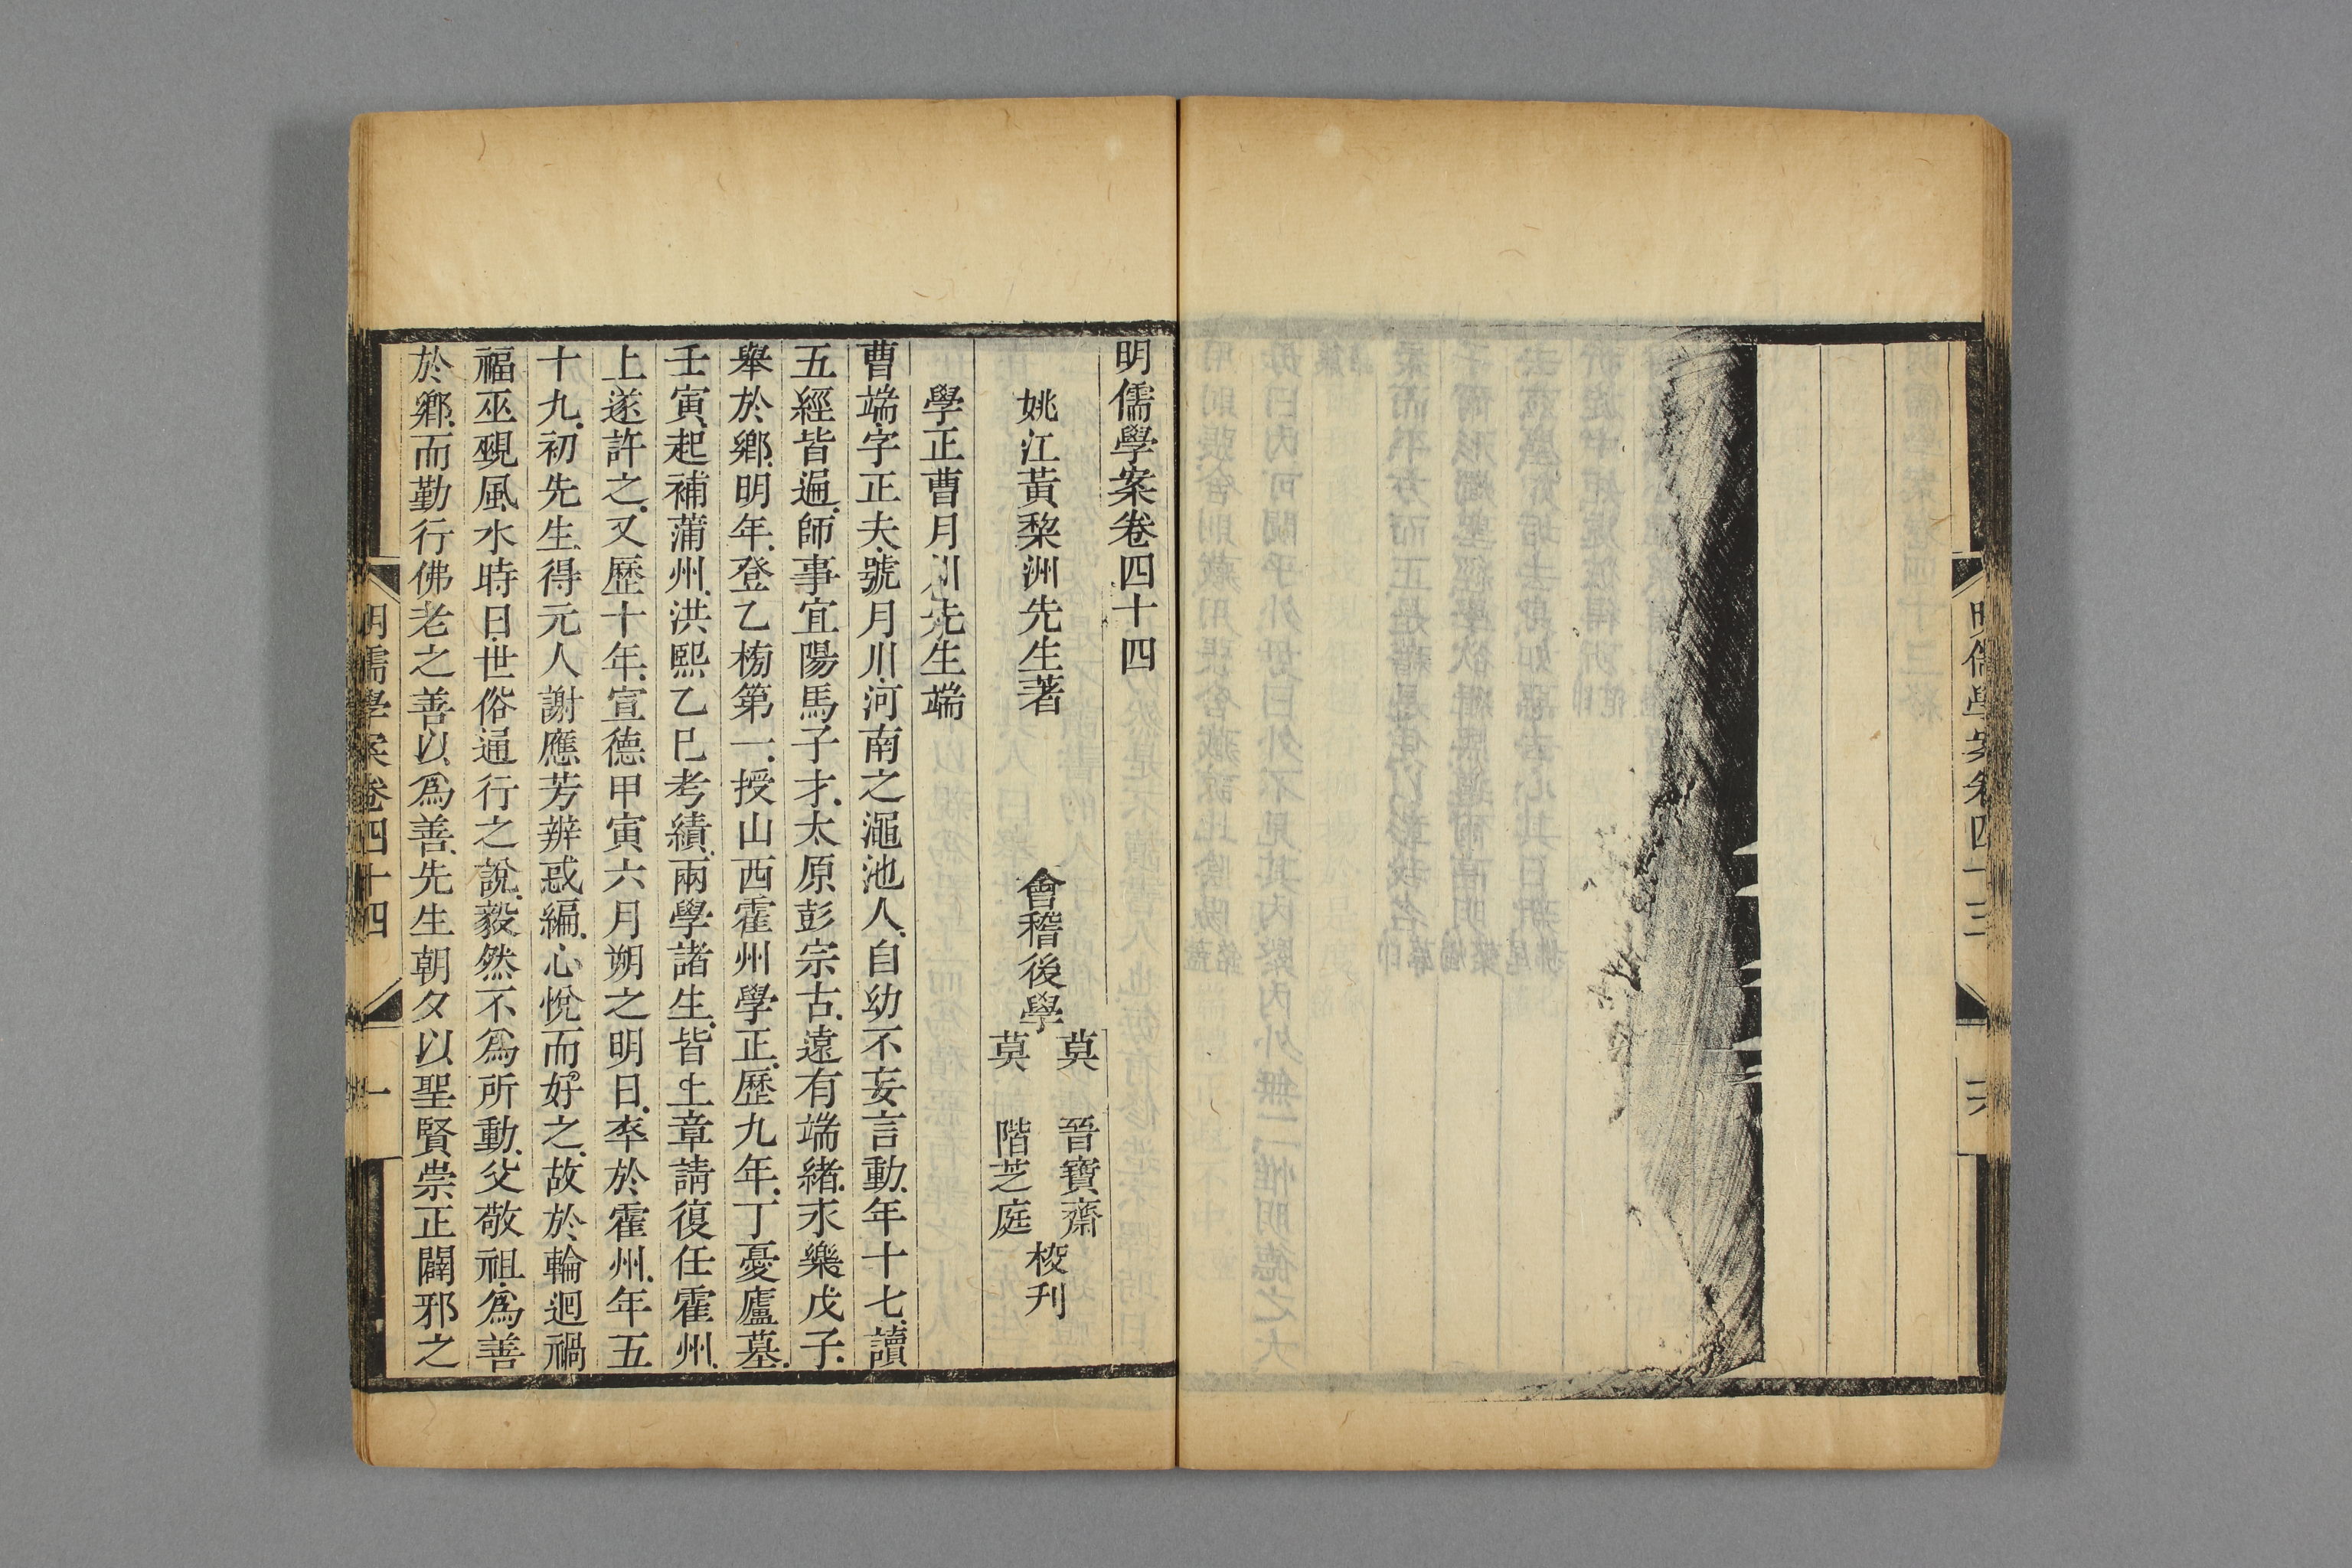 明儒學案卷四十三
六
明儒學案卷四十四
姚江黃棃洲先生著
會稽後學
莫晉寶齋
莫階芝庭
校刊
學正曹月川先生端
曹端字正夫號月川河南之澠池人自幼不妄言動年十七讀
五經皆遍師事宜陽馬子才太原彭宗古遠有端緒永樂戊子
舉於鄉明年登乙榜第一授山西霍州學正歷九年丁憂廬墓
壬寅起補蒲州洪熙乙巳考績兩學諸生皆上章請復任霍州
上遂許之又歷十年宣德甲寅六月朔之明日卒於霍州年五
十九初先生得元人謝應芳辨惑編心悅而好之故於輪迴禍
福巫覡風水時日世俗通行之說毅然不爲所動父敬祖爲善
於鄉而勤行佛老之善以爲善先生朝夕以聖賢崇正闢邪之
明儒學案卷四十四
一